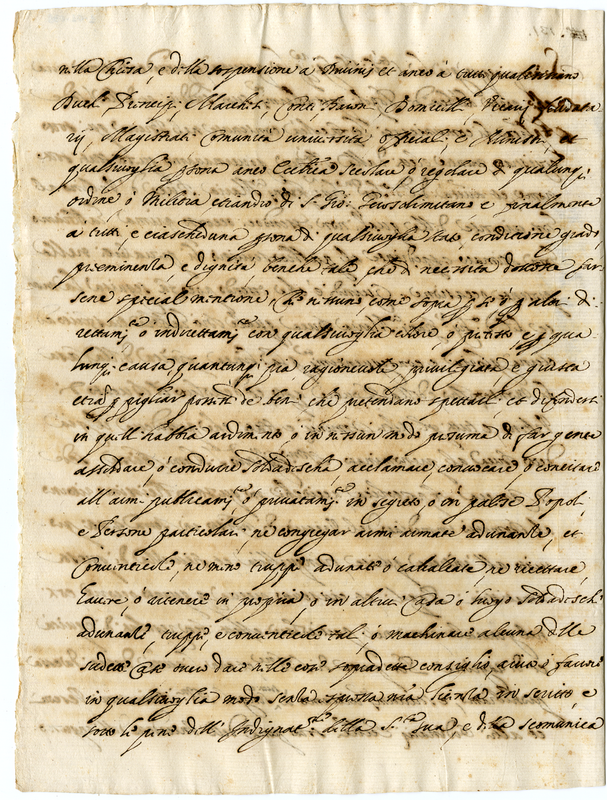 nella Chiesa, e della sospensione a Divinis et anco à tutti qualsivoglino
Duchi, Principi, Marchesi, Conti, Baroni, Domicelli, Vicarij, feudata
rij, Magistrati Comunità università officiali e Ministri, et
qualsivoglia psona anco Eccles.ca secolare ò regolare di qualunq;
ordine ò Militia etiandio di S. Gio: Gierosolimitano e finalmente
a tutti, e ciascheduna psona di qualsivoglia stato conditione grado
preeminenza, e dignità benche tale che di necessità dovesse far
sene special mentione, che nessuno, come sopra p se ò p altri di
rettam.te ò indirettam.te con qualsivoglia colore ò p.testo, e p qua
lunq; causa, quantunq; pia ragionevole privilegiata, e giusta
etia p pigliar possesso de beni che pretendano spettarli, et difendersi
in quelli habbia ardimento ò in nessun modo presuma di far gente
assoldare, ò condurre soldadesche, acclamare, convocare ò concitare
all'armi publicam.te ò privatam.te in segreto, ò in palese Popoli
e Persone particolari, ne congregar armi armate adunanze, et
Conventicole, ne meno truppe adunate ò cavalcate, ne ricettare
havere ò ritenere in propria, ò in altrui Casa ò luogo soldadesche
adunanze, truppe, e conventicole tali, ò machinare alcuna delle
sudette cose overo dare nelle cose sopradette consiglio, aiuto ò favore
in qualsivoglia modo senza espressa mia licenza in scritto, e
sotto le pene dell'Indignat.ne della S.tà Sua, e della scomunica